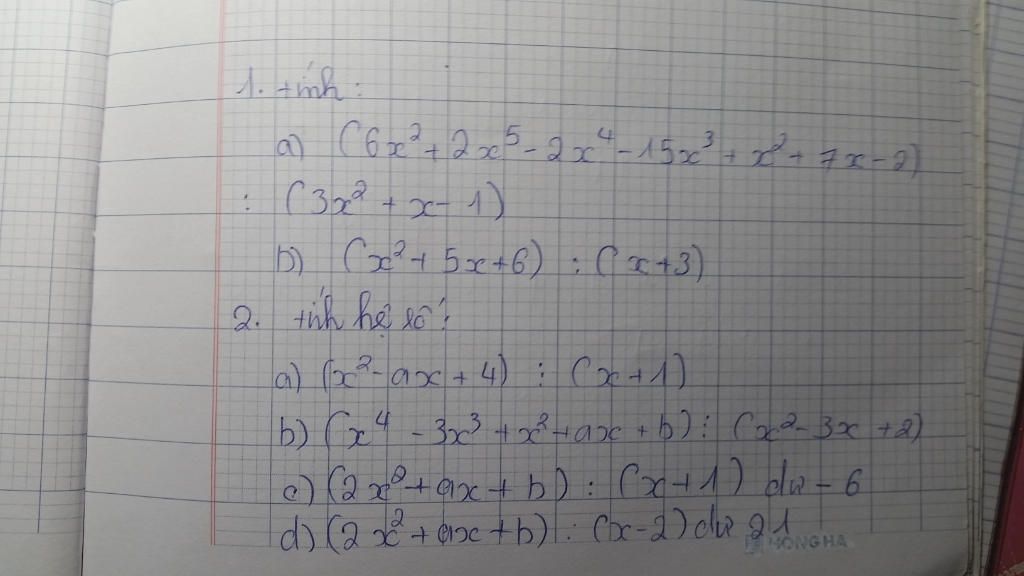 1. tính :
a) (6x² + 2x⁵ - 2x⁴ - 15x³ + x² + 7x - 2)
: (3x² + x - 1)
b) (x² + 5x + 6) : (x + 3)
2. tính hệ số :
a) (x² - ax + 4) : (x + 1)
b) (x⁴ - 3x³ + x² + ax + b) : (x² - 3x + 2)
c) (2x² + ax + b) : (x + 1) dư - 6
d) (2x² + ax + b) : (x - 2) dư 21
HONG HA